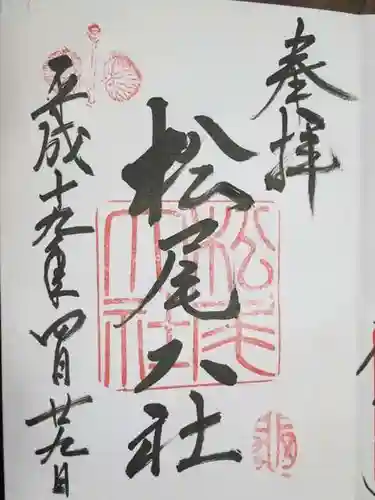 奉拝
松尾大社
平成十九年四月廿九日
松尾
大社